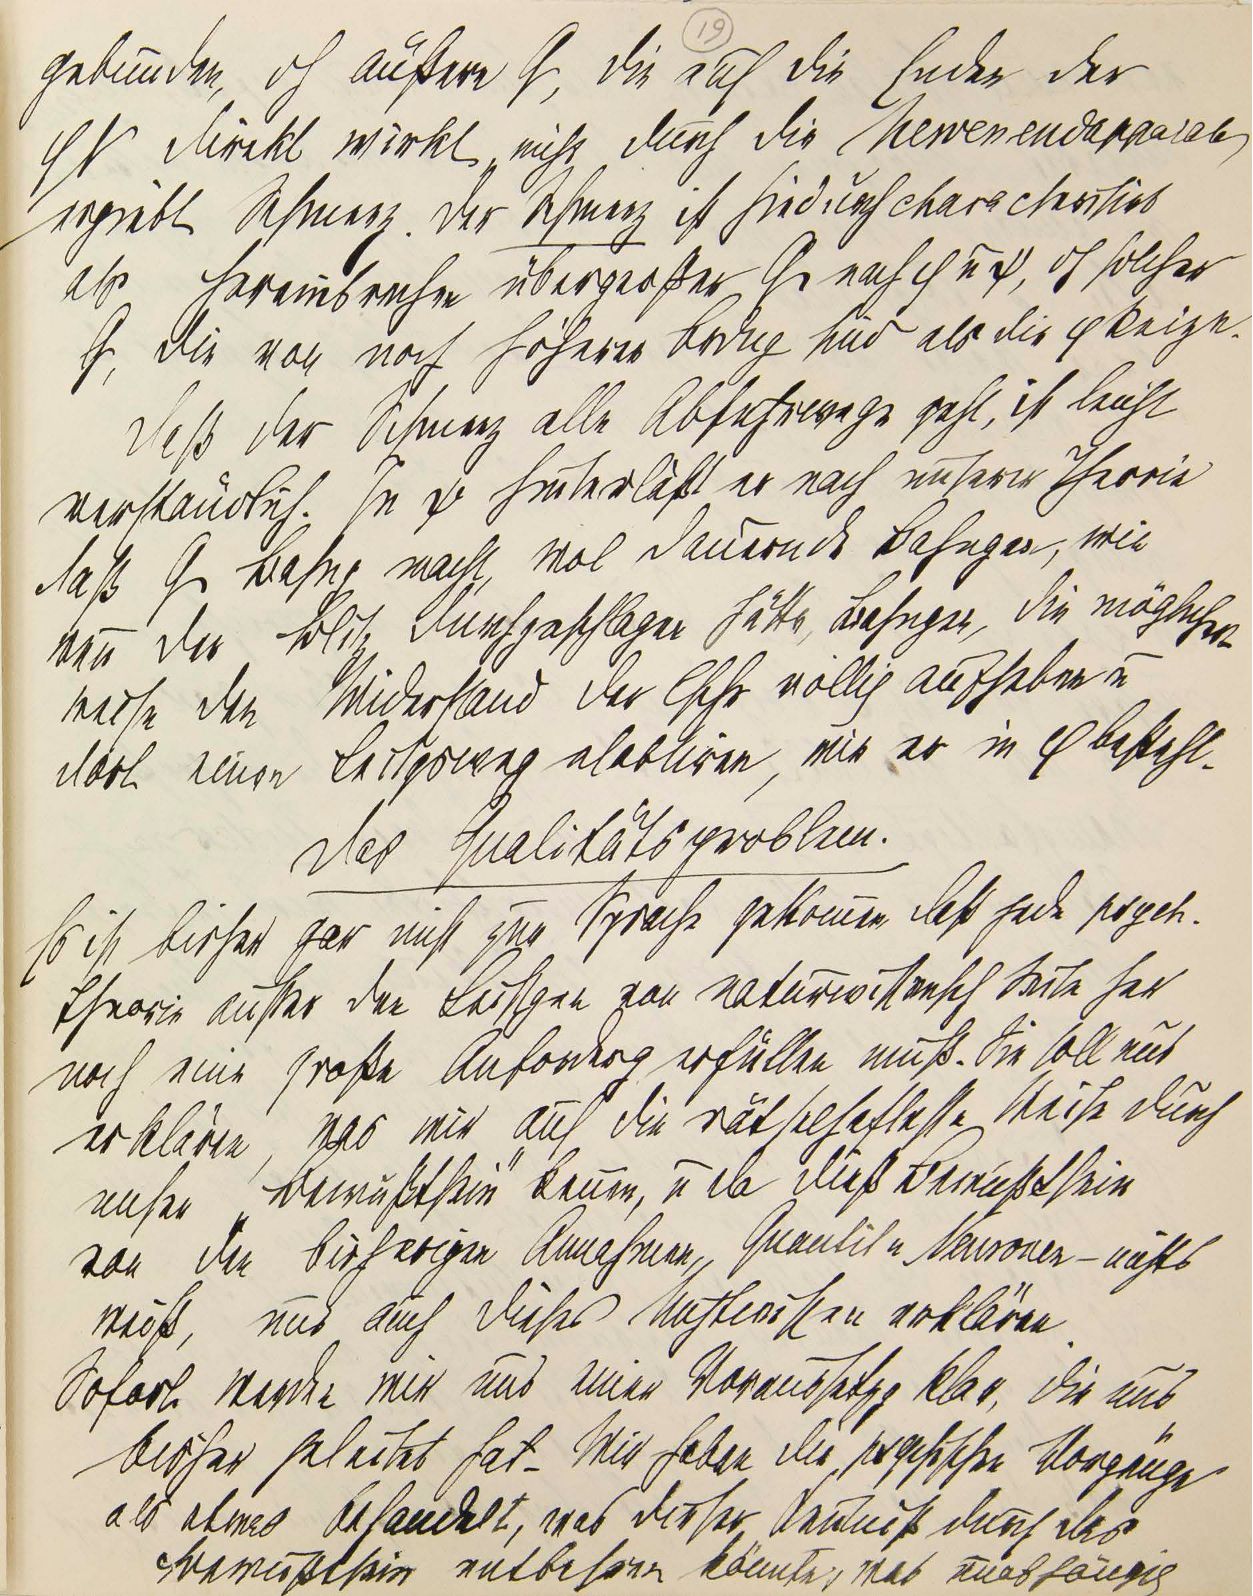 19
gebunden, dh äußere Q, die auf die Enden der
φN direkt wirkt, nicht durch die Nervenendapparate,
ergiebt Schmerz. Der Schmerz ist hiedurch characterisirt
als Hereinbrechen übergroßer Q nach φ u ψ, dh solcher
Q, die von noch höherer Ordng sind als die φ Reize.
Daß der Schmerz alle Abfuhrwege geht, ist leicht
verständlich. In ψ hinterläßt er nach unserer Theorie
daß Q Bahng macht, wol dauernde Bahngen, wie
wenn der Blitz durchgeschlagen hätte, Bahngen, die möglicher
weise den Widerstand der Cschr völlig aufheben u
dort einen Leitgsweg etabliren, wie er in φ besteht.
Das Qualitätsproblem.
Es ist bisher gar nicht zur Sprache gekommen daß jede psych.
Theorie außer den Leistgen von naturwissensch Seite her
noch eine große Anforderg erfüllen muß. Sie soll uns
erklären, was wir auf die räthselhafteste Weise durch
unser „Bewußtsein" kennen, u da dieß Bewußtsein
von den bisherigen Annahmen, Quantit u Neuronen – nichts
weiß, uns auch dieses Nichtwissen erklären.
Sofort werden wir uns einer Voraussetzg klar, die uns
bisher geleitet hat. Wir haben die psychischen Vorgänge
als etwas behandelt, was dieser Kenntniß durch das
Bewußtsein entbehren könnte, was unabhängig